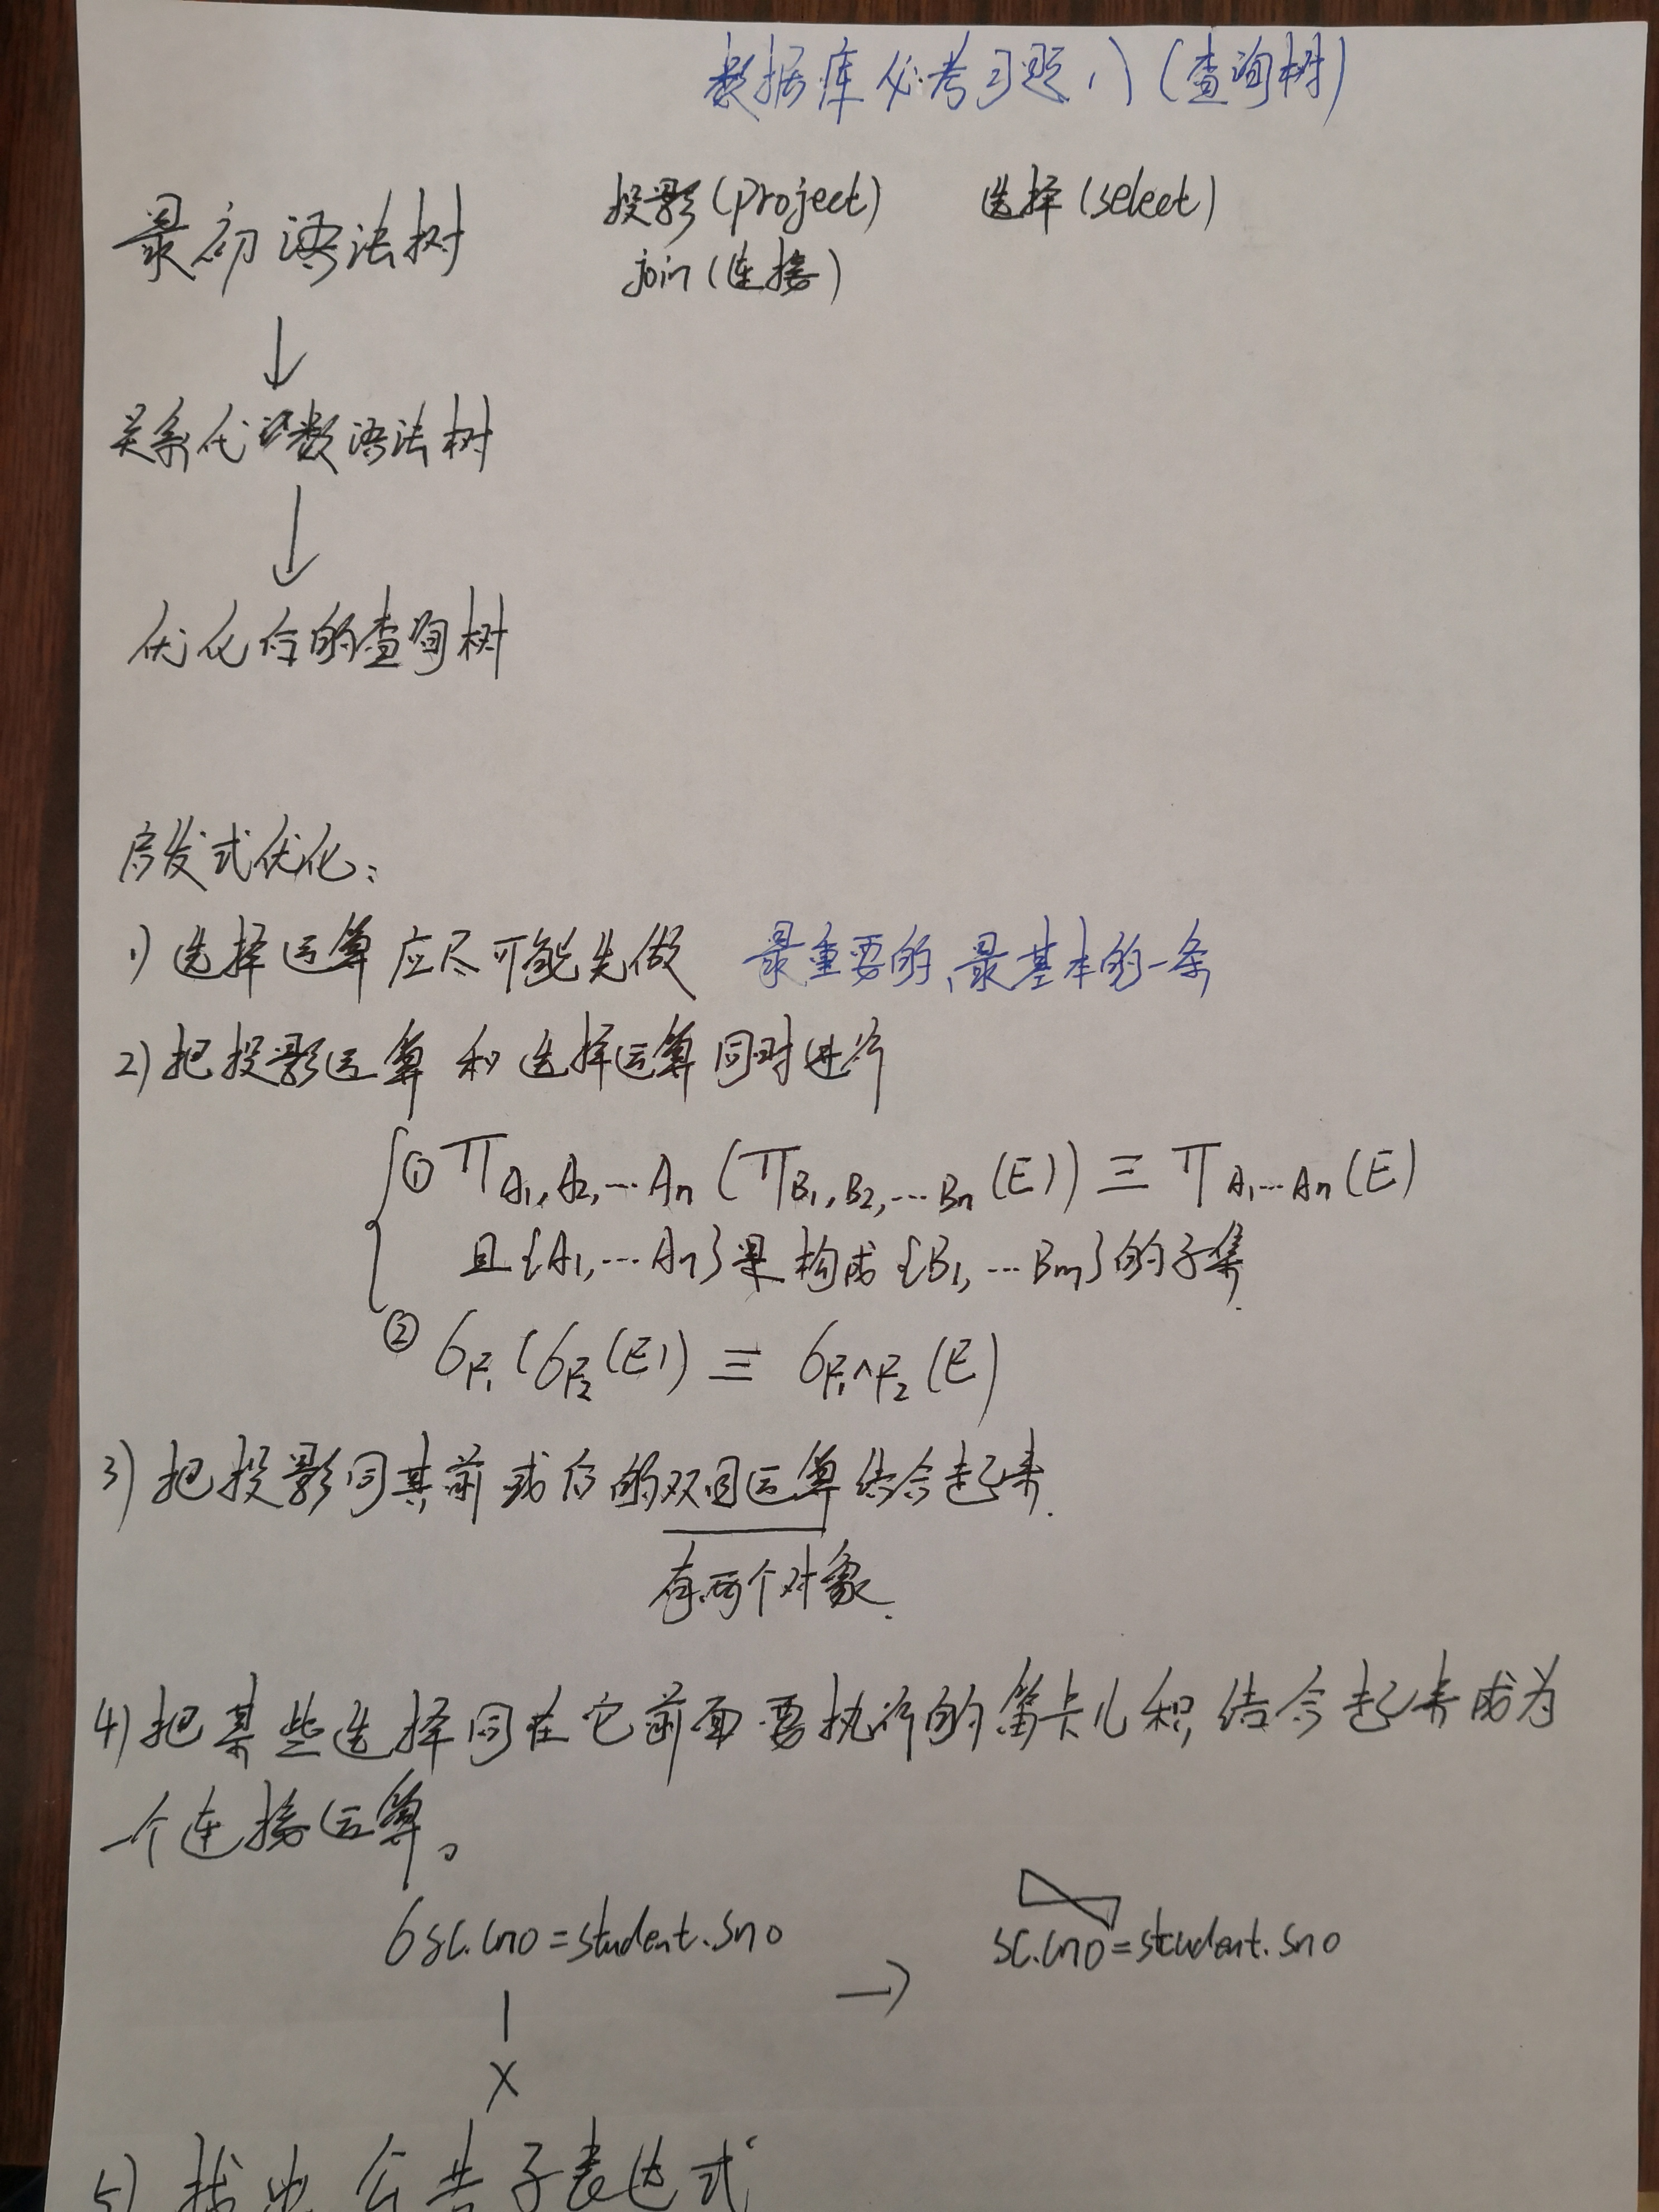 数据库必考习题1）（查询树）
投影（project） 选择（select）
join（连接）
最初语法树
↓
关系代数语法树
↓
优化后的查询树
启发式优化：
1）选择运算应尽可能先做 最重要的、最基本的一条
2）把投影运算和选择运算同时进行
① π A1, A2, ... An (π B1, B2, ... Bn (E)) ≡ π A1 ... An (E)
且{A1, ... An}是构成{B1, ... Bm}的子集.
② σF1 (σF2 (E)) ≡ σF1∧F2 (E)
3）把投影同其前或后的双目运算结合起来.
有两个对象.
4）把某些选择同在它前面要执行的笛卡儿积结合起来成为
一个连接运算。
σ sc.cno = student.sno → ⋈ sc.cno = student.sno
|
×
5）找出公共子表达式